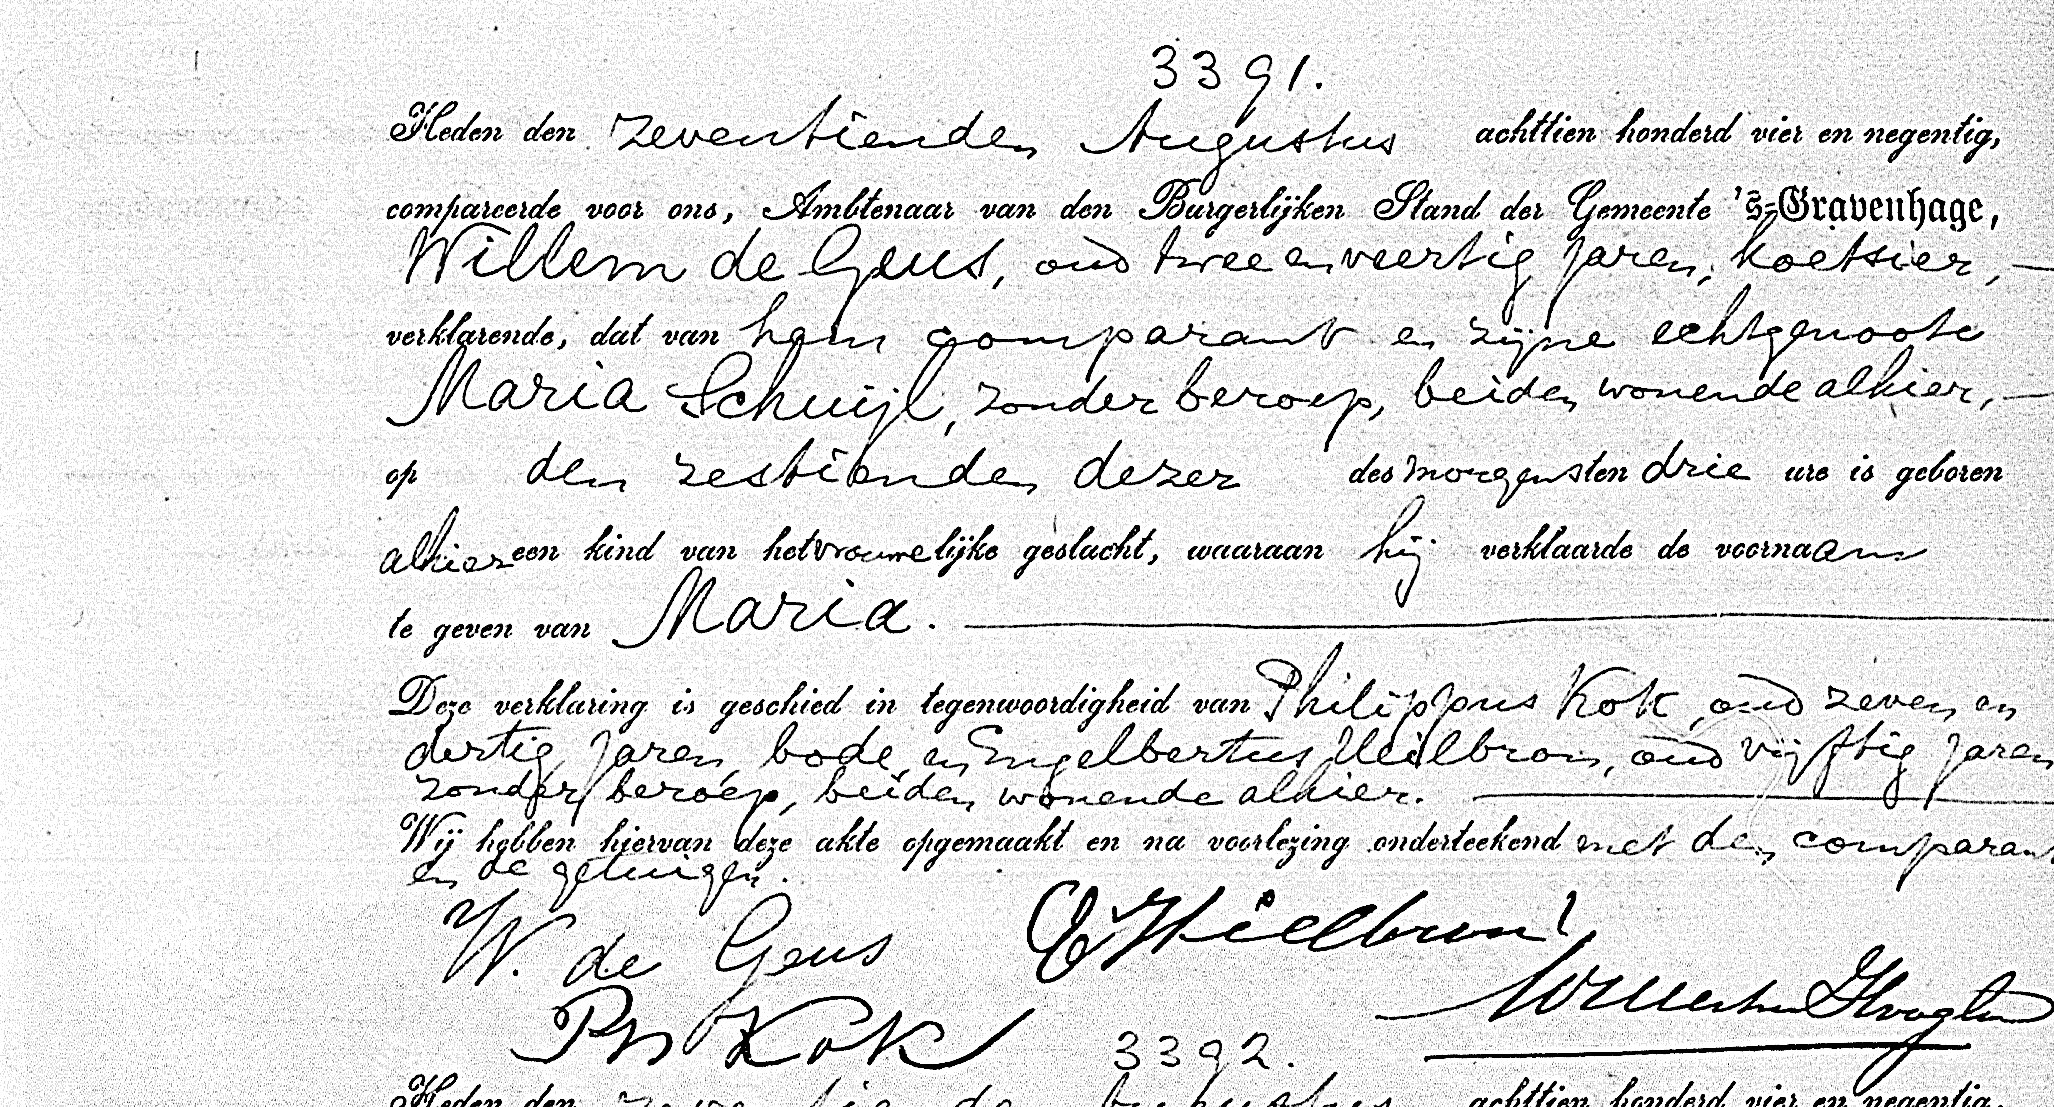 3391.
Heden den zeventienden Augustus achttien honderd vier en negentig,
compareerde voor ons, Ambtenaar van den Burgerlijken Stand der Gemeente 's-Gravenhage,
Willem de Geus, oud twee en veertig jaren, koetsier,
verklarende, dat van hem comparant en zijne echtgenoote
Maria Schuijl, zonder beroep, beiden wonende alhier,
op den zestienden dezer des morgens ten drie ure is geboren
alhier een kind van het vrouwelijke geslacht, waaraan hij verklaarde de voornaam
te geven van Maria.
Deze verklaring is geschied in tegenwoordigheid van Philippus Kok, oud zeven en
dertig jaren, bode, en Engelbertus Heilbron, oud vijftig jaren
zonder beroep, beiden wonende alhier.
Wij hebben hiervan deze akte opgemaakt en na voorlezing onderteekend met den comparant
en de getuigen.
W. de Geus
Ph Kok
3392.
Heden den achttien honderd vier en negentig,